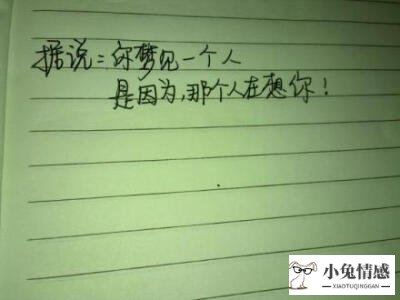 据说：你梦见一个人
是因为，那个人在想你！
小兔情感
XIAOTUQINGGAN